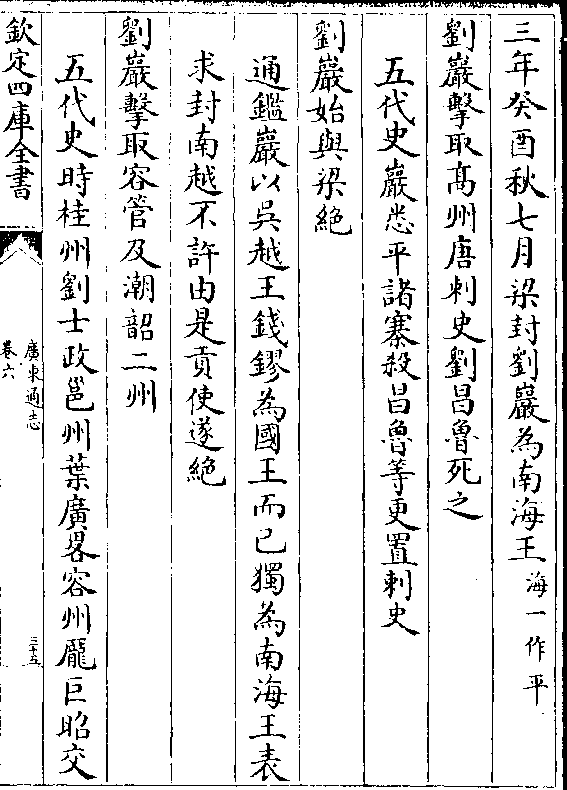 三年癸酉秋七月梁封劉巖為南海王海一作平
劉巖擊取髙州唐刺史劉昌魯死之
五代史巖悉平諸寨殺昌魯等更置刺史
劉巖始與梁絶
通鑑巖以吳越王錢鏐為國王而已獨為南海王表
求封南越不許由是貢使遂絶
劉巖擊取容管及潮韶二州
五代史時桂州劉士政邕州葉廣畧容州龐巨昭交
欽定四庫全書
廣東通志
卷六
三十五